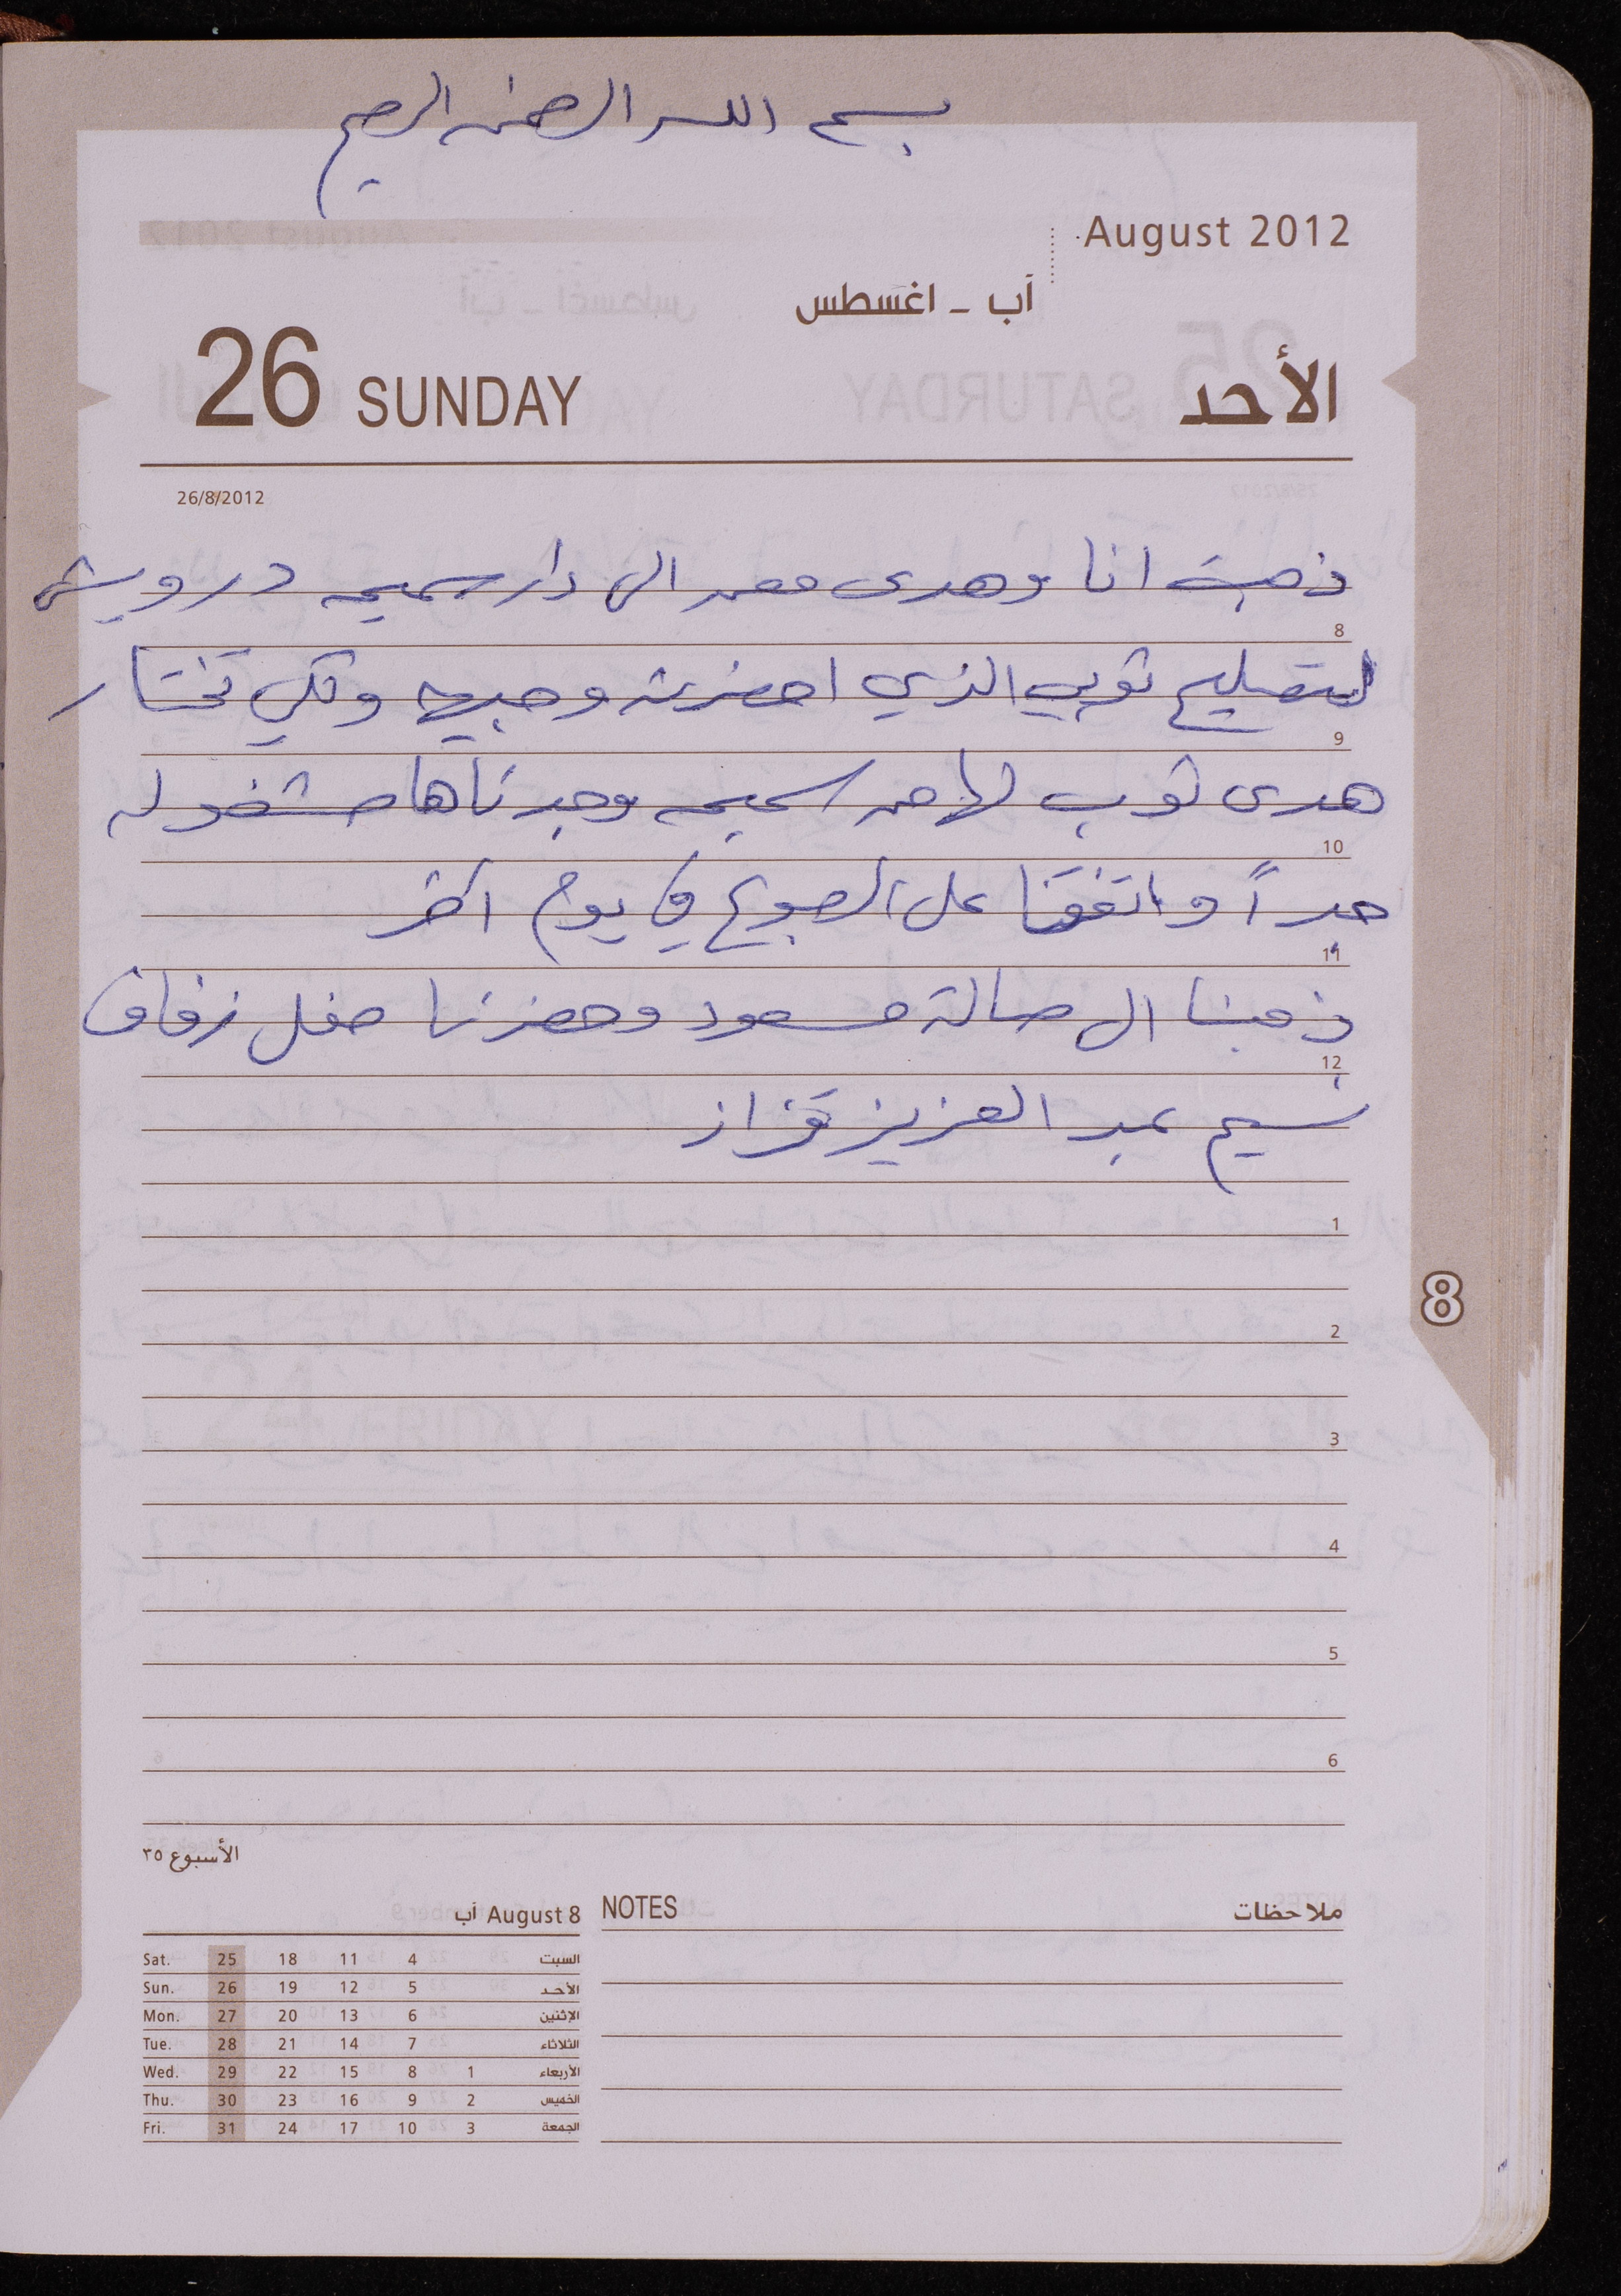 بسم الله الرحمن الرحيم
August 2012
آب - اغسطس
26 SUNDAY الأحد
26/8/2012
ذهبت انا وهدى معمر الى دار سميحه درويش
8
لتصليح ثوبي الذي احضرته وجيهه ولكي تختار
9
هدى ثوب لها من سميحه وجدناها مشغوله
10
جداً واتفقنا على الرجوع في يوم اخر
11
ذهبنا الى صالة مسعود وحضرنا حفل زفاف
12
نسيم عبد العزيز قزاز
1
8
2
3
4
5
6
الأسبوع ٣٥
آب August 8
Sat. 25 18 11 4 السبت
Sun. 26 19 12 5 الأحد
Mon. 27 20 13 6 الإثنين
Tue. 28 21 14 7 الثلاثاء
Wed. 29 22 15 8 1 الأربعاء
Thu. 30 23 16 9 2 الخميس
Fri. 31 24 17 10 3 الجمعة
NOTES ملاحظات